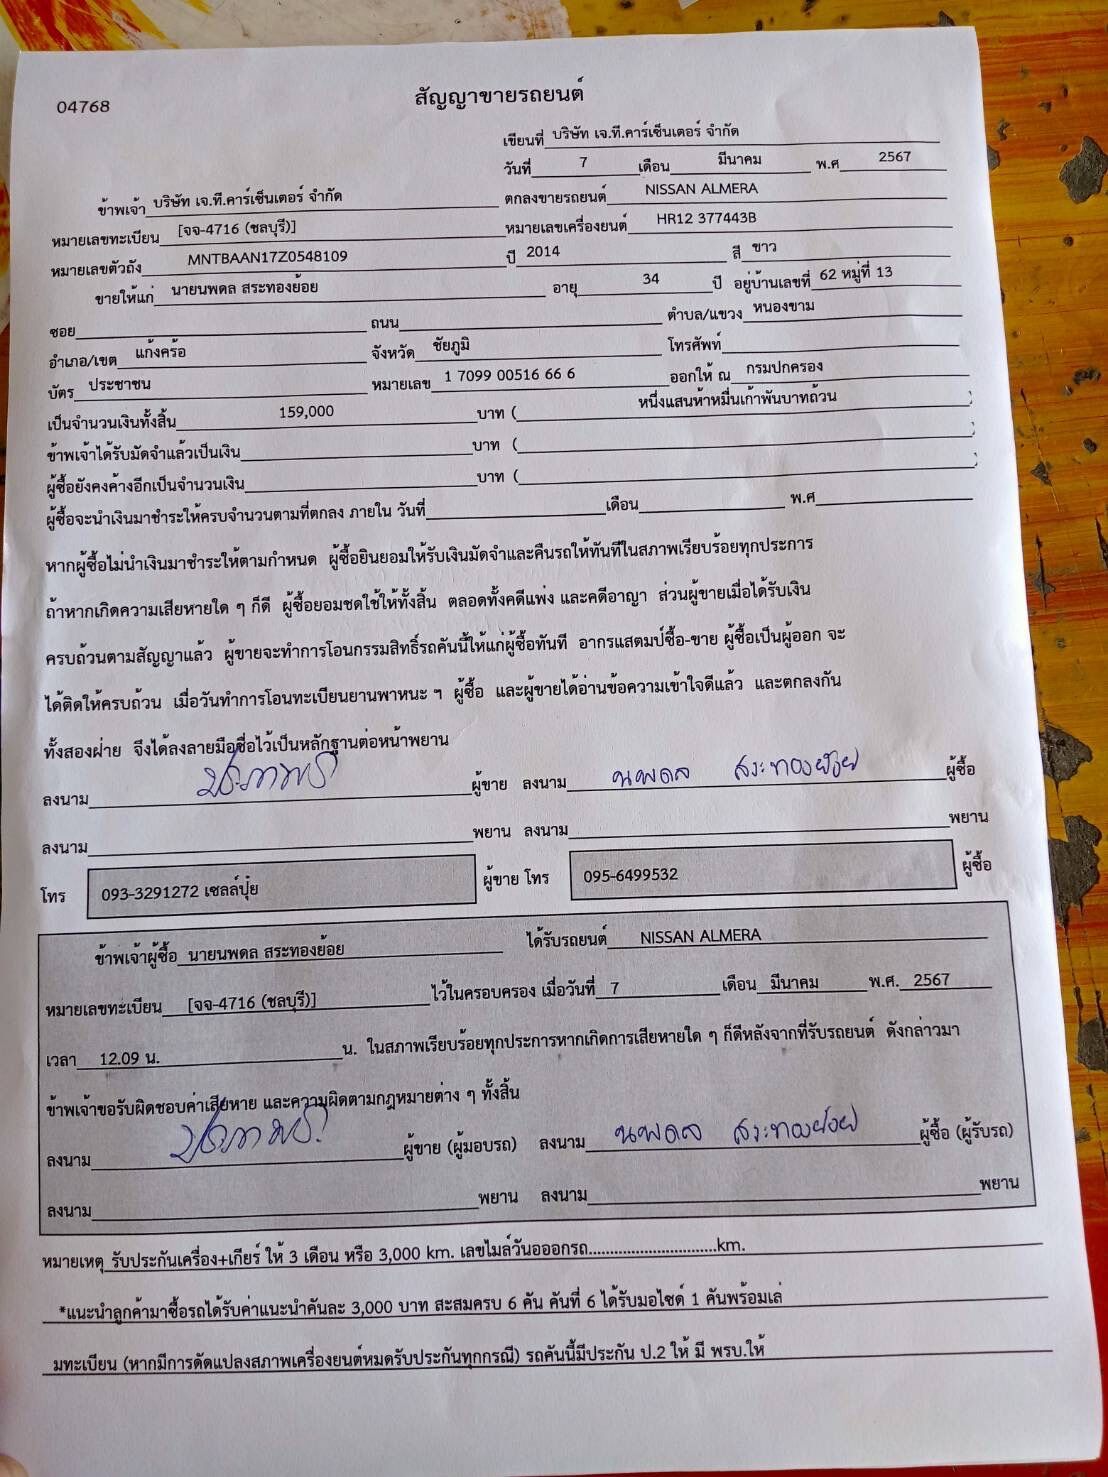 04768
สัญญาขายรถยนต์
เขียนที่ บริษัท เจ.ที.คาร์เซ็นเตอร์ จำกัด
วันที่ 7 เดือน มีนาคม พ.ศ 2567
ข้าพเจ้า บริษัท เจ.ที.คาร์เซ็นเตอร์ จำกัด ตกลงขายรถยนต์ NISSAN ALMERA
หมายเลขทะเบียน [จจ-4716 (ชลบุรี)] หมายเลขเครื่องยนต์ HR12 377443B
หมายเลขตัวถัง MNTBAAN17Z0548109 ปี 2014 สี ขาว
ขายให้แก่ นายนพดล สระทองย้อย อายุ 34 ปี อยู่บ้านเลขที่ 62 หมู่ที่ 13
ซอย ถนน ตำบล/แขวง หนองขาม
อำเภอ/เขต แก้งคร้อ จังหวัด ชัยภูมิ โทรศัพท์
บัตร ประชาชน หมายเลข 1 7099 00516 66 6 ออกให้ ณ กรมปกครอง
เป็นจำนวนเงินทั้งสิ้น 159,000 บาท ( หนึ่งแสนห้าหมื่นเก้าพันบาทถ้วน )
ข้าพเจ้าได้รับมัดจำแล้วเป็นเงิน บาท ( )
ผู้ซื้อยังคงค้างอีกเป็นจำนวนเงิน บาท ( )
ผู้ซื้อจะนำเงินมาชำระให้ครบจำนวนตามที่ตกลง ภายใน วันที่ เดือน พ.ศ
หากผู้ซื้อไม่นำเงินมาชำระให้ตามกำหนด ผู้ซื้อยินยอมให้รับเงินมัดจำและคืนรถให้ทันทีในสภาพเรียบร้อยทุกประการ
ถ้าหากเกิดความเสียหายใด ๆ ก็ดี ผู้ซื้อยอมชดใช้ให้ทั้งสิ้น ตลอดทั้งคดีแพ่ง และคดีอาญา ส่วนผู้ขายเมื่อได้รับเงิน
ครบถ้วนตามสัญญาแล้ว ผู้ขายจะทำการโอนกรรมสิทธิ์รถคันนี้ให้แก่ผู้ซื้อทันที อากรแสตมป์ซื้อ-ขาย ผู้ซื้อเป็นผู้ออก จะ
ได้ติดให้ครบถ้วน เมื่อวันทำการโอนทะเบียนยานพาหนะ ฯ ผู้ซื้อ และผู้ขายได้อ่านข้อความเข้าใจดีแล้ว และตกลงกัน
ทั้งสองฝ่าย จึงได้ลงลายมือชื่อไว้เป็นหลักฐานต่อหน้าพยาน
ลงนาม ผู้ขาย ลงนาม นพดล สระทองย้อย ผู้ซื้อ
ลงนาม พยาน ลงนาม พยาน
โทร 093-3291272 เซลล์ปุ๋ย ผู้ขาย โทร 095-6499532 ผู้ซื้อ
ข้าพเจ้าผู้ซื้อ นายนพดล สระทองย้อย ได้รับรถยนต์ NISSAN ALMERA
หมายเลขทะเบียน [จจ-4716 (ชลบุรี)] ไว้ในครอบครอง เมื่อวันที่ 7 เดือน มีนาคม พ.ศ. 2567
เวลา 12.09 น. น. ในสภาพเรียบร้อยทุกประการหากเกิดการเสียหายใด ๆ ก็ดีหลังจากที่รับรถยนต์ ดังกล่าวมา
ข้าพเจ้าขอรับผิดชอบค่าเสียหาย และความผิดตามกฎหมายต่าง ๆ ทั้งสิ้น
ลงนาม ผู้ขาย (ผู้มอบรถ) ลงนาม นพดล สระทองย้อย ผู้ซื้อ (ผู้รับรถ)
ลงนาม พยาน ลงนาม พยาน
หมายเหตุ รับประกันเครื่อง+เกียร์ ให้ 3 เดือน หรือ 3,000 km. เลขไมล์วันอออกรถ..............................km.
*แนะนำลูกค้ามาซื้อรถได้รับค่าแนะนำคันละ 3,000 บาท สะสมครบ 6 คัน คันที่ 6 ได้รับมอไซด์ 1 คันพร้อมเล่
มทะเบียน (หากมีการดัดแปลงสภาพเครื่องยนต์หมดรับประกันทุกกรณี) รถคันนี้มีประกัน ป.2 ให้ มี พรบ.ให้